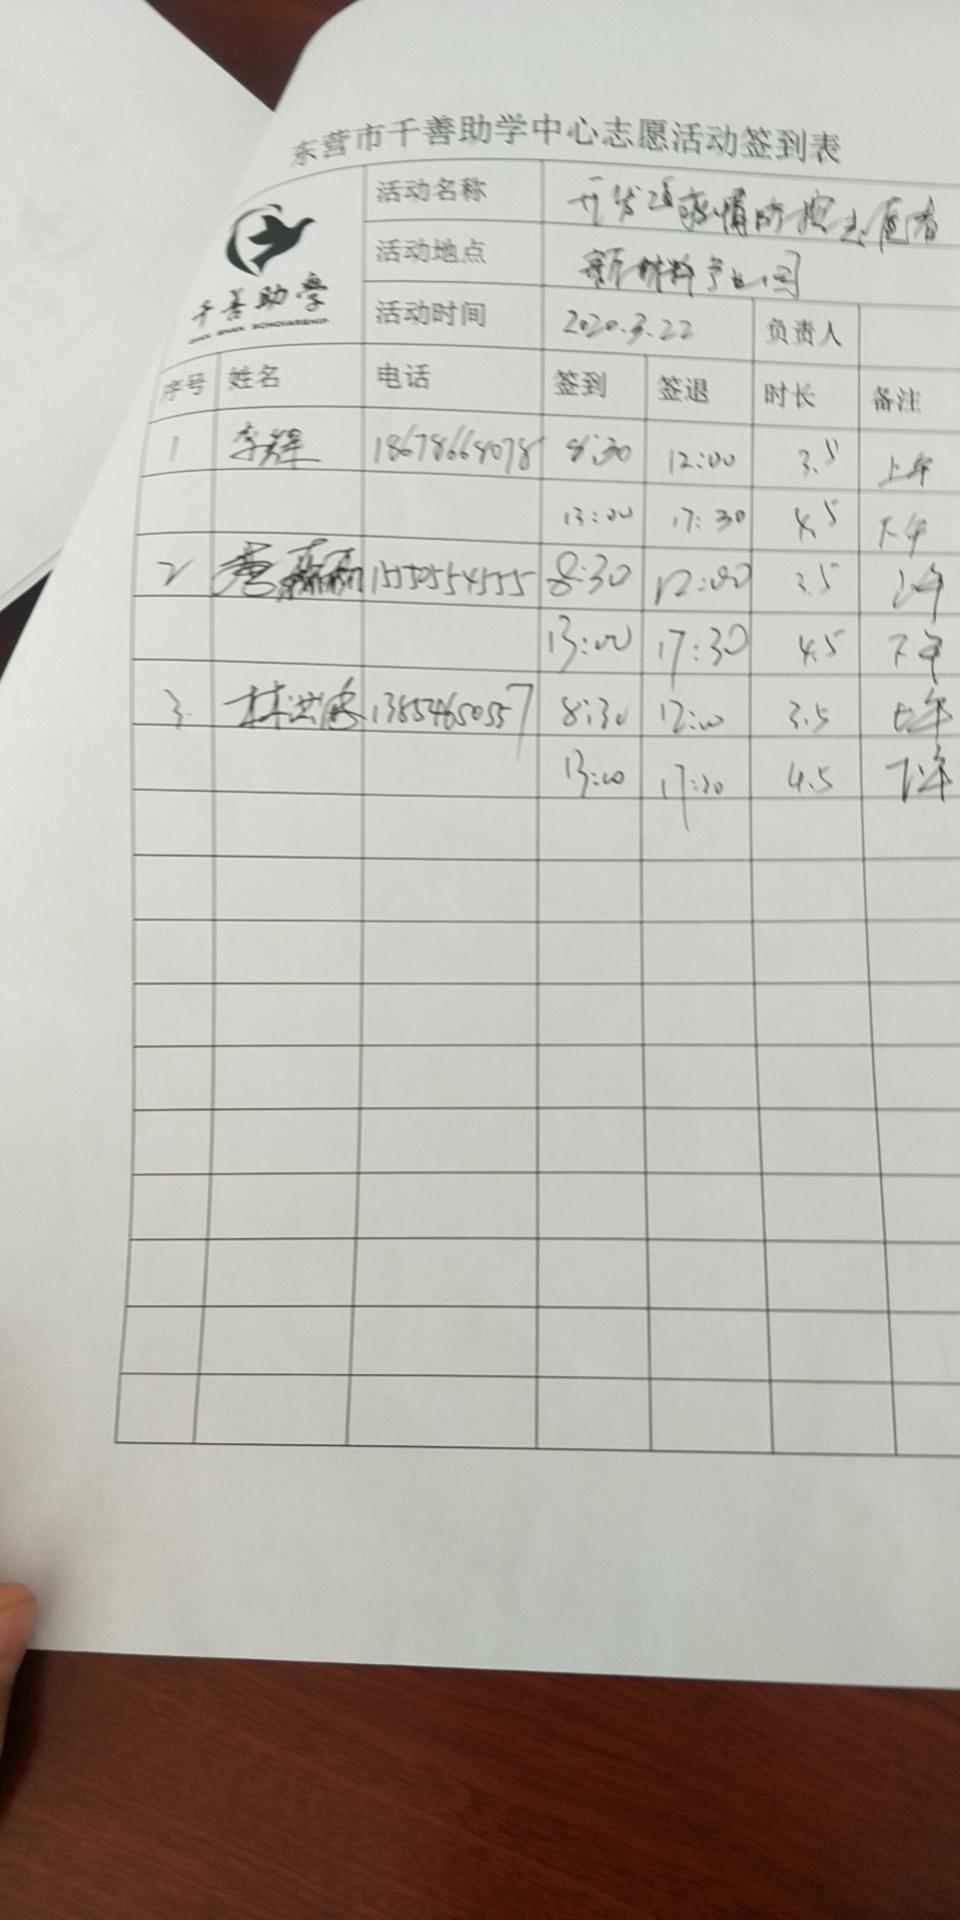 东营市千善助学中心志愿活动签到表
千善助学
QIAN SHAN SCHOLARSHIP
活动名称 开发区疫情防控志愿者
活动地点 新材料产业园
活动时间 2020.3.22 负责人
序号 姓名 电话 签到 签退 时长 备注
1 李辉 18678664078 8:30 12:00 3.5 上午
13:00 17:30 4.5 下午
2 黄磊磊 15505554555 8:30 12:00 3.5 上午
13:00 17:30 4.5 下午
3 林洪 13854650557 8:30 12:00 3.5 上午
13:00 17:30 4.5 下午